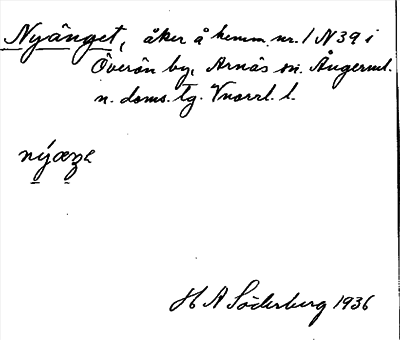 Nyänget, åker å hemm. nr. 1 N 39 i
Överön by, Arnäs sn. Ångerml.
n. doms. tg. Vnorrl. l.
H A Söderberg 1936